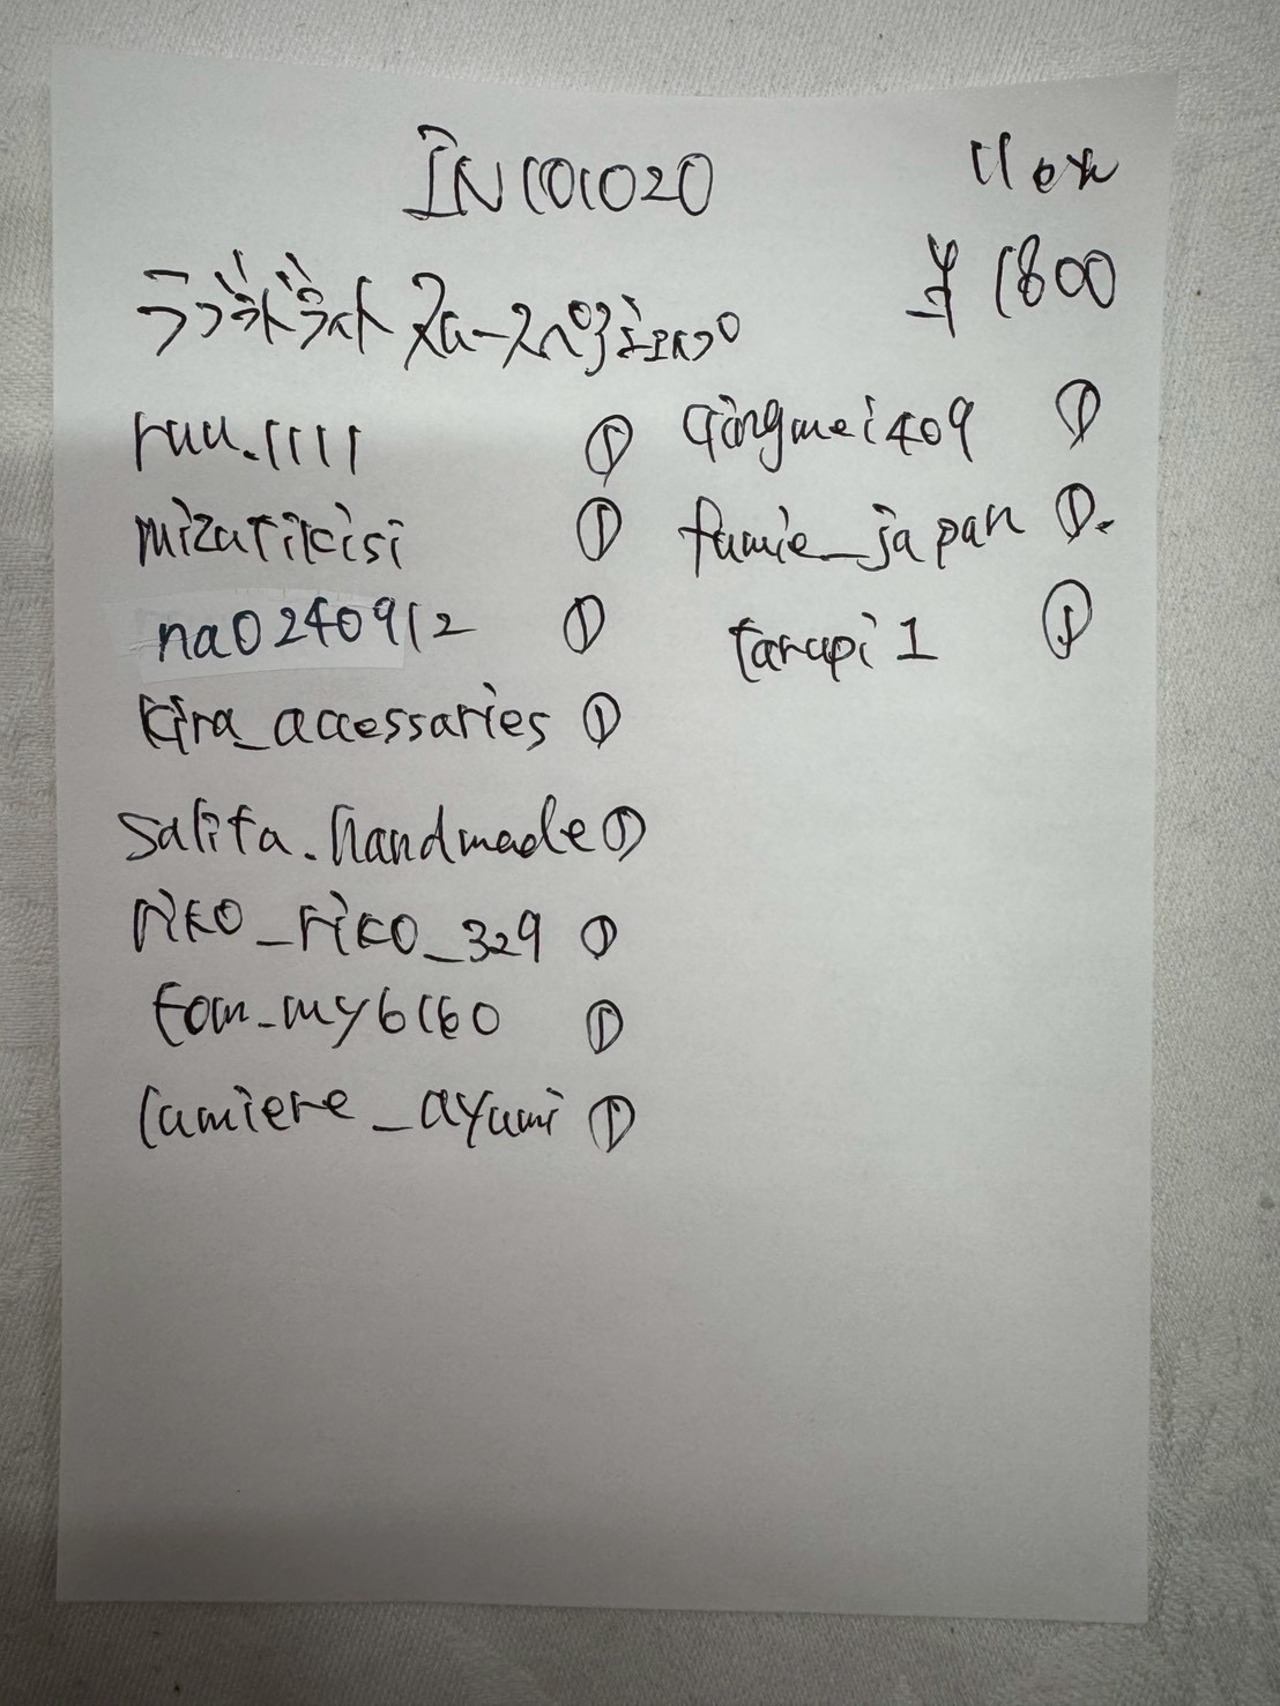 IN101020
11ox
¥1800
ruu.1111 ①
mizutikisi ①
na0240912 ①
kira_accessaries ①
salita.handmade ①
riko_riko_329 ①
tom_my6160 ①
lumiere_ayumi ①
qingmei409 ①
fumie_japan ①.
tarupi1 ①